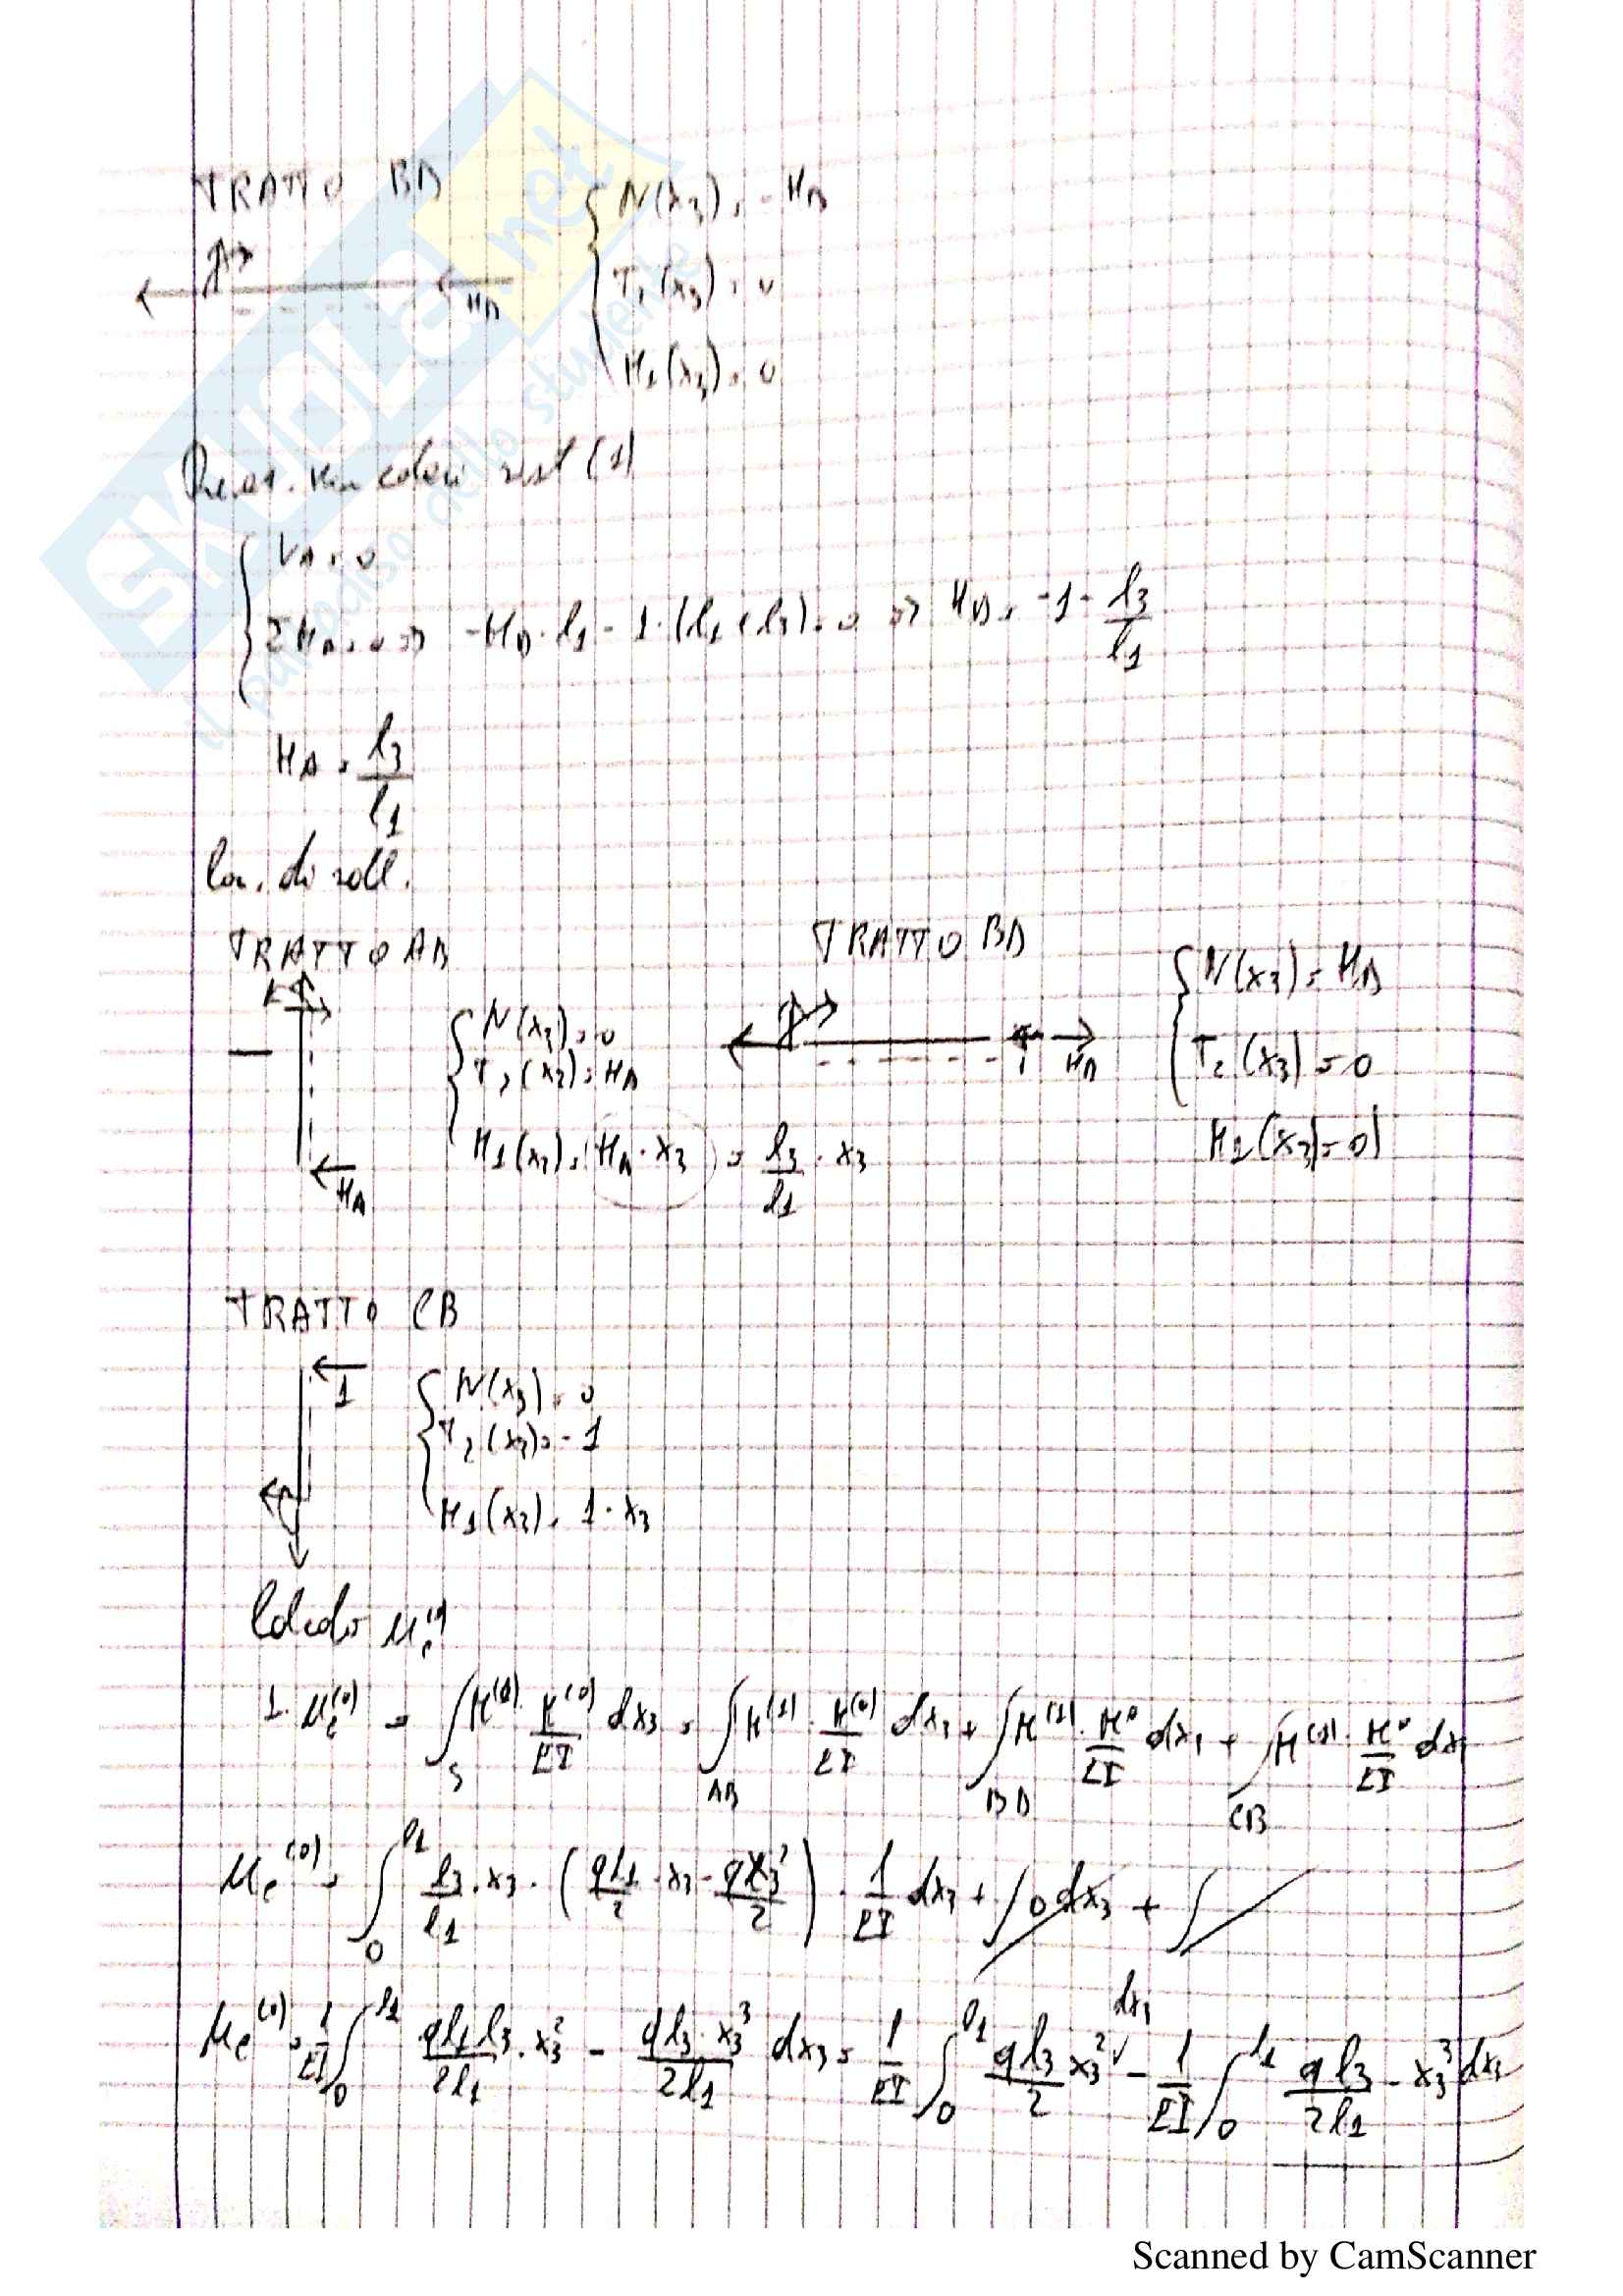 TRATTO BD
N(x3) = -HD
T2(x3) = 0
M1(x3) = 0
HD
SKUOLA.net
il paradiso dello studente
Reaz. vincolari sist (1)
VA = 0
ΣMA = 0 => -HD · l1 - 1 · (l1 + l3) = 0 => HD = -1 - l3/l1
HA = l3/l1
TRATTO AB
TRATTO BD
N(x3) = 0
T2(x3) = HA
M1(x3) = HA · x3 = l3/l1 · x3
HA
HD
N(x3) = HD
T2(x3) = 0
M1(x3) = 0
TRATTO CB
1
N(x3) = 0
T2(x3) = -1
M1(x3) = 1 · x3
Calcolo μc(0)
1 · μc(0) = ∫S M(1) · M(0)/EI dx3 = ∫AB M(1) · M(0)/EI dx3 + ∫BD M(1) · M0/EI dx3 + ∫CB M(1) · M0/EI dx3
μc(0) = ∫0^l1 l3/l1 · x3 · (ql1/2 · x3 - qx3²/2) · 1/EI dx3 + ∫ 0 dx3 + ∫
μc(0) = 1/EI ∫0^l1 ql1l3/2l1 · x3² - ql3 · x3³/2l1 dx3 = 1/EI ∫0^l1 ql3/2 x3² dx3 - 1/EI ∫0^l1 ql3/2l1 - x3³ dx3
Scanned by CamScanner